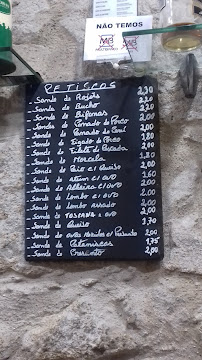 NÃO TEMOS
PETISCOS
_Sande de Rojões 2,30
_Sande de Bucho 2,20
_Sande de Bifanas 2,20
_Sande de Panado de Porco 2,00
_Sande de Panado de Coni 2,00
_Sande de Figado de Porco 1,80
_Sande de 2,00
_Sande de Morcela 1,20
_Sande de Paio c/ Queijo 2,00
_Sande de Atum c/ ovo 1,60
_Sande de Alheira c/ ovo 2,00
_Sande de Lombo c/ ovo 2,00
_Sande de Lombo Assado 2,00
_Sande de c/ ovo 2,00
_Sande de Queijo 1,70
_Sande de ovos Mexidos c/ Presunto 2,00
_Sande de Pataniscas 1,75
_Sande de Presunto 2,00